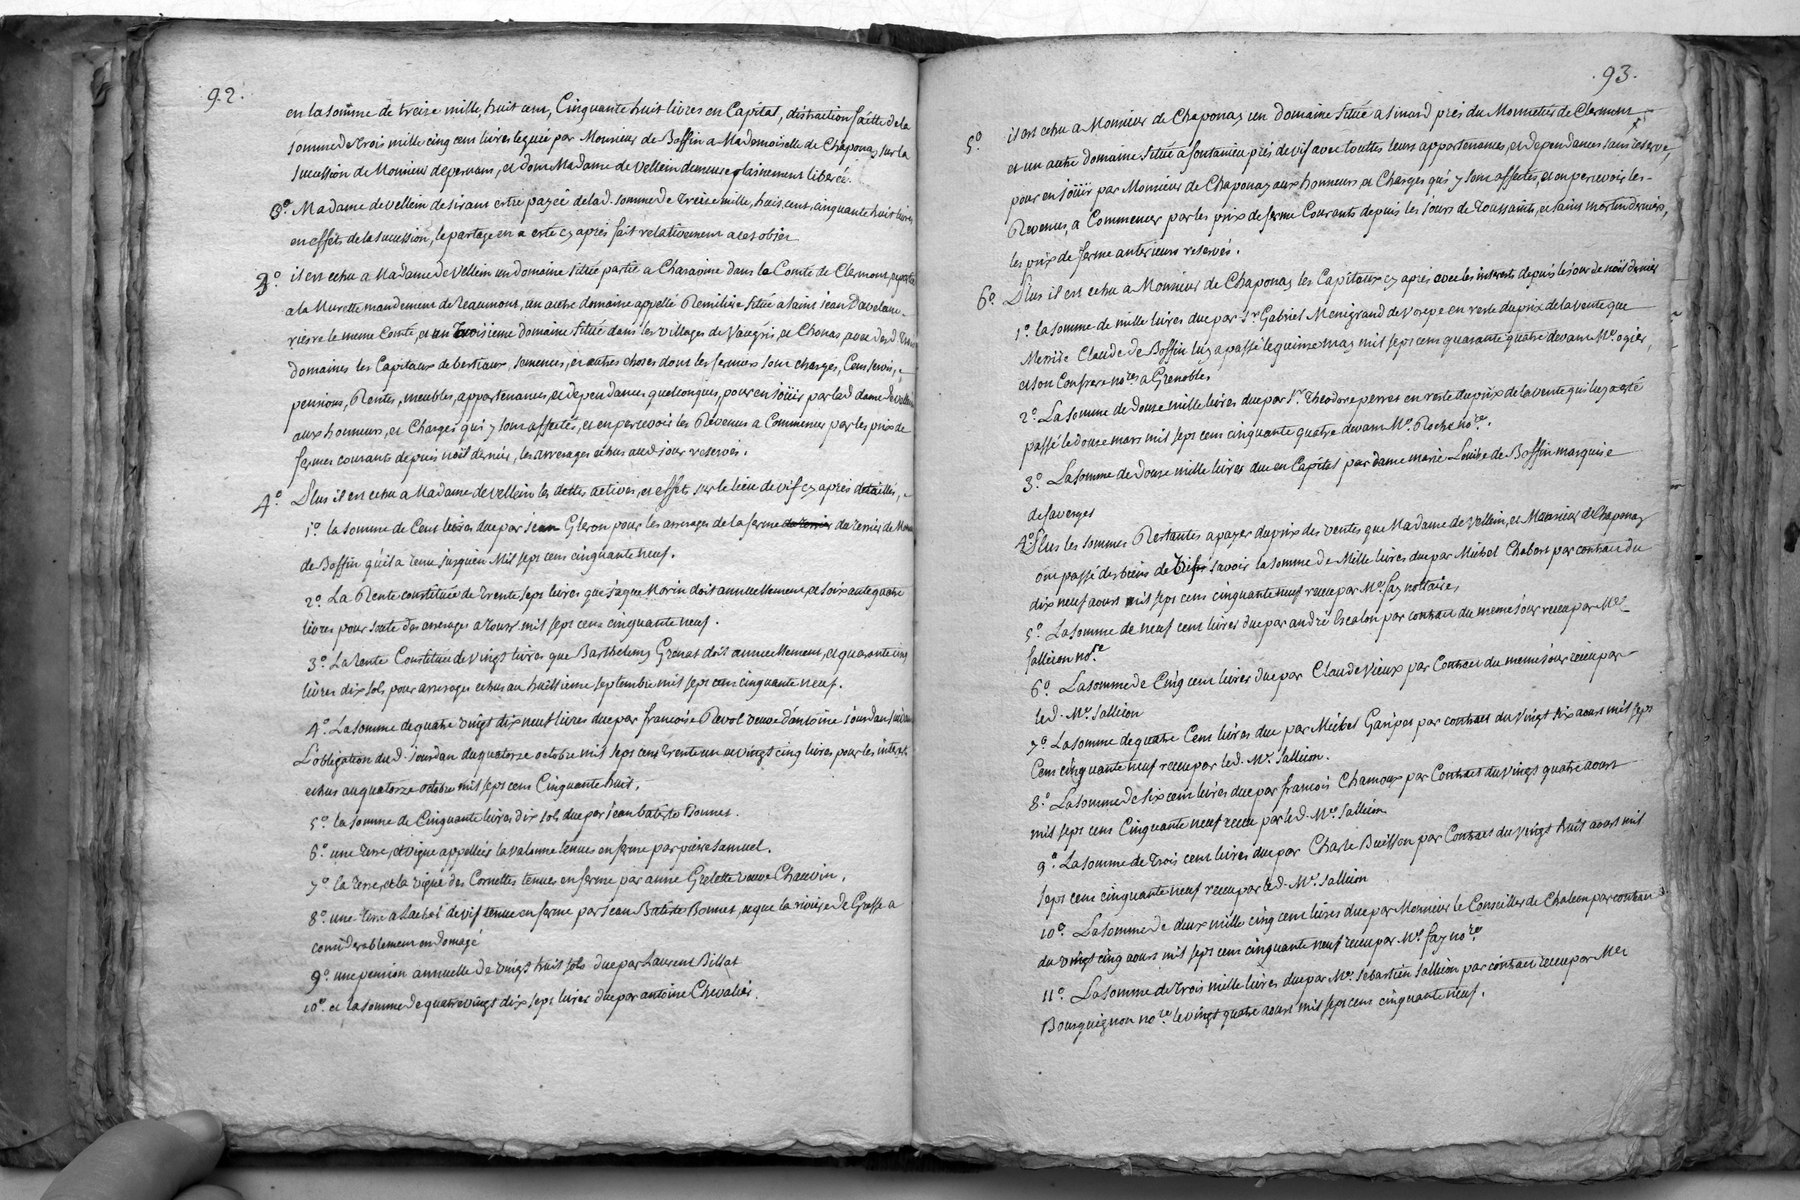 92.
en la somme de treise mille, huit cent, Cinquante huit livres en Capital, distraction faitte de la
somme de trois mille cinq cent livres leguée par Monsieur de Boffin a Mademoiselle de Chaponay sur la
sucession de Monsieur depernans, et dont Madame de Vellein demeure plainement liberée.
3º. Madame de vellein desirant estre payée de lad. somme de treise mille, huit cent, cinquante huit livres
en effets de la sucession, le partage en a esté cy après fait relativement a cet objet
3º. il est echu a Madame de Vellein un domaine situé partie a Charavine dans la Comté de Clermont, et partie
a la Murette mandement de Reaumont, un autre domaine appellé Remilise situé a saint jean D'avelane
riere le meme Comté, et un troisieme domaine situé dans les villages de Vaugris, et Chonas, avec desd. trois
domaines les Capitaux de bestiaux, semences, et autres choses dont les fermiers sont chargés, Cens servis,
pensions, Rentes, meubles, appartenances, et dependances quelconques, pour en joüir par lad. dame de vellein
aux honneurs, et Charges qui y sont affectés, et en percevoir les Revenus a Commencer par les prix de
fermes courants depuis noël dernier, les arrerages echus aud. jour reservés.
4º. Plus il est echu a Madame de vellein les dettes actives, et effets sur le lieu de vif cy après detaillés,
1º. la somme de Cent livres due par jean Gleron pour les arrerages de la ferme du terrier de Monsr.
de Boffin qu'il a tenu jusqu'en Mil sept cent cinquante neuf.
2º. La Rente constituée de trente sept livres que jaque Morin doit annuellement, et soixante quatre
livres pour soute des arrerages a tout mil sept cent cinquante neuf.
3º. La rente Constituée de vingt livres que Barthelemy Grenat doit annuellement, et quarante une
livres dix sols pour arrerages echus au huitieme septembre mil sept cent cinquante neuf.
4º. La somme de quatre vingt dix neuf livres due par françoise Revol veuve d'antoine jourdan suivant
L'obligation dud. jourdan du quatorze octobre mil sept cent trente un et vingt cinq livres pour les interets
echus au quatorze octobre mil sept cent Cinquante huit.
5º. la somme de Cinquante livres dix sols due par jean batiste Bonnet.
6º. une terre, et vigne appellées la valonne tenues en ferme par pierre Samuel.
7º. la terre, et la vigne des Cornettes tenues en ferme par anne Grelette veuve Chauvin.
8º. une terre a de vif tenue en ferme par jean Batiste Bonnet, et que la riviere de Gresse a
considerablement endomagé
9º. une pension annuelle de vingt huit sols due par Laurent Billat
10º. et la somme de quatre vingt dix sept livres due par antoine Chevalier.
93.
5º. il est echu a Monsieur de Chaponay un domaine situé a sinard près du Monnetier de Clermont
et un autre domaine situé a fontanieu près de vif avec touttes leurs appartenances, et dependances sans reserve,
pour en joüir par Monsieur de Chaponay aux honneurs, et Charges qui y sont affectés, et en percevoir les
Revenus, a Commencer par les prix de ferme Courants depuis les jours de toussaints, et saint martin derniers,
les prix de ferme anterieurs reservés.
6º. Plus il est echu a Monsieur de Chaponay les Capitaux cy après avec les interets depuis le jour de noël dernier
1º. la somme de mille livres due par Sr. Gabriel Menigrand de vorepe en reste du prix de la vente que
Messire Claude de Boffin luy a passé le quinze may mil sept cent quarante quatre devant Me. ogier,
et son Confrere nores. a Grenoble,
2º. La somme de douze mille livres due par Sr. Theodore perret en reste du prix de la vente qui luy a eté
passé le douze mars mil sept cent cinquante quatre devant Me. Roche nore.
3º. La somme de douze mille livres due en Capital par dame marie Louise de Boffin marquise
de saverges
4º. Plus les sommes Restantes a payer du prix des ventes que Madame de Vellein, et Monsieur de Chaponay
ont passé des biens de Vif savoir la somme de Mille livres due par Michel Chabert par contrat du
dix neuf aout mil sept cent cinquante neuf receu par Me. fay nottaire,
5º. La somme de neuf cent livres due par andré Escalon par contrat du meme jour receu par Me.
sallicon nore.
6º. La somme de Cinq cent livres due par Claude Vieux par Contrat du meme jour receu par
led. Me. Sallicon
7º. La somme de quatre Cent livres due par Michel Garipat par contrat du vingt six aout mil sept
Cent cinquante neuf receu par led. Me. Sallicon.
8º. La somme de six cent livres due par françois Chamoux par Contrat du vingt quatre aout
mil sept cent Cinquante neuf receu par led. Me. Sallicon
9º. La somme de trois cent livres due par Charle Buisson par Contrat du vingt huit aout mil
sept cent cinquante neuf receu par led. Me. Sallicon
10º. La somme de deux mille cinq cent livres due par Monsieur le Conseiller de Chaleon par contrat
du vingt cinq aout mil sept cent cinquante neuf receu par Me. fay nore.
11º. La somme de trois mille livres due par Me. Sebastien Sallicon par contrat receu par Me.
Bourguignon nore. le vingt quatre aout mil sept cent cinquante neuf.